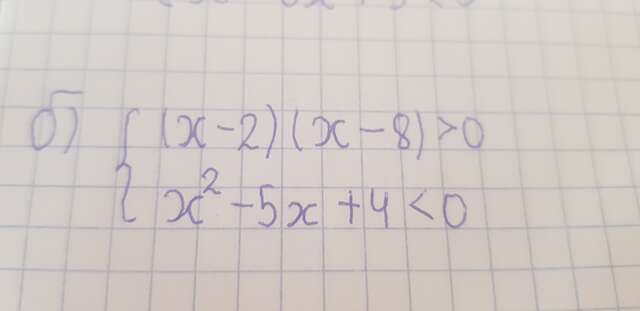 б)
{ (x-2)(x-8)>0
x²-5x+4<0